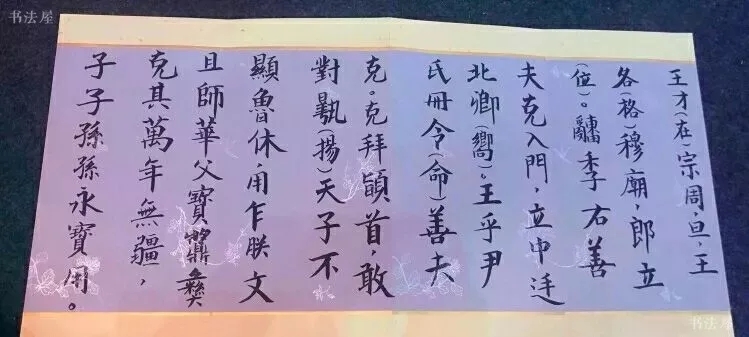 王才(在)宗周,旦,王
各(格)穆廟,郎立
(位)。季右善
夫克入門,立中廷
北卿(嚮)。王乎尹
氏冊令(命)善夫
克。克拜頴首,敢
對(揚)天子不
顯魯休,用乍朕文
且師華父寶彝
克其萬年無疆,
子子孫孫永寶用。
书法屋
书法屋